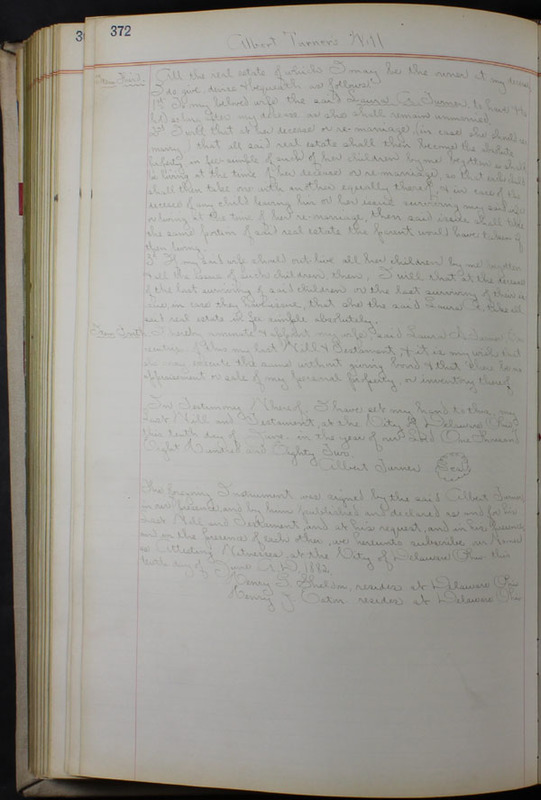 372
Albert Turner's Will
Item Third. All the real estate of which I may be the owner at my decease
I do give, devise & bequeath as follows:
1st To my beloved wife the said Laura A. Turner to have & to
hold so long after my decease as she shall remain unmarried.
2d I will that at her decease or re-marriage (in case she should re-
marry) that all said real estate shall then become the absolute
in fee simple of each of her children by me begotten as shall
be living at the time of her decease or re-marriage, so that each child
shall then take one with another equally thereof, & in case of the
decease of any child leaving him or her issue surviving
or living at the time of her re-marriage, then said issue shall take
the same portion of said real estate the parent would have taken if
then living.
3d If my said wife should out live all her children by me begotten
& all the issue of such children then, I will that at the decease
of the last surviving of said children or the last surviving of their is-
sue, in case they have issue, that she the said Laura A. take all
said real estate in fee simple absolutely.
Item Fourth. I hereby nominate & appoint my wife said Laura A. Turner Ex-
ecutrix of this my last Will & Testament, & it is my wish that
she may execute the same without giving bond & that there be no
appraisement or sale of my personal property, or inventory thereof
In Testimony Whereof, I have set my hand to this, my
last Will and Testament, at the City of Delaware Ohio
this tenth day of June, in the year of our Lord One Thousand
Eight Hundred and Eighty Two.
Albert Turner Seal
The foregoing Instrument was signed by the said Albert Turner
in our presence, and by him published and declared as and for his
last Will and Testament, and at his request, and in his presence
and in the presence of each other, we hereunto subscribe our Names
as Attesting Witnesses, at the City of Delaware Ohio this
tenth day of June A.D. 1882.
Henry S. resides at Delaware Ohio
Henry J. resides at Delaware Ohio